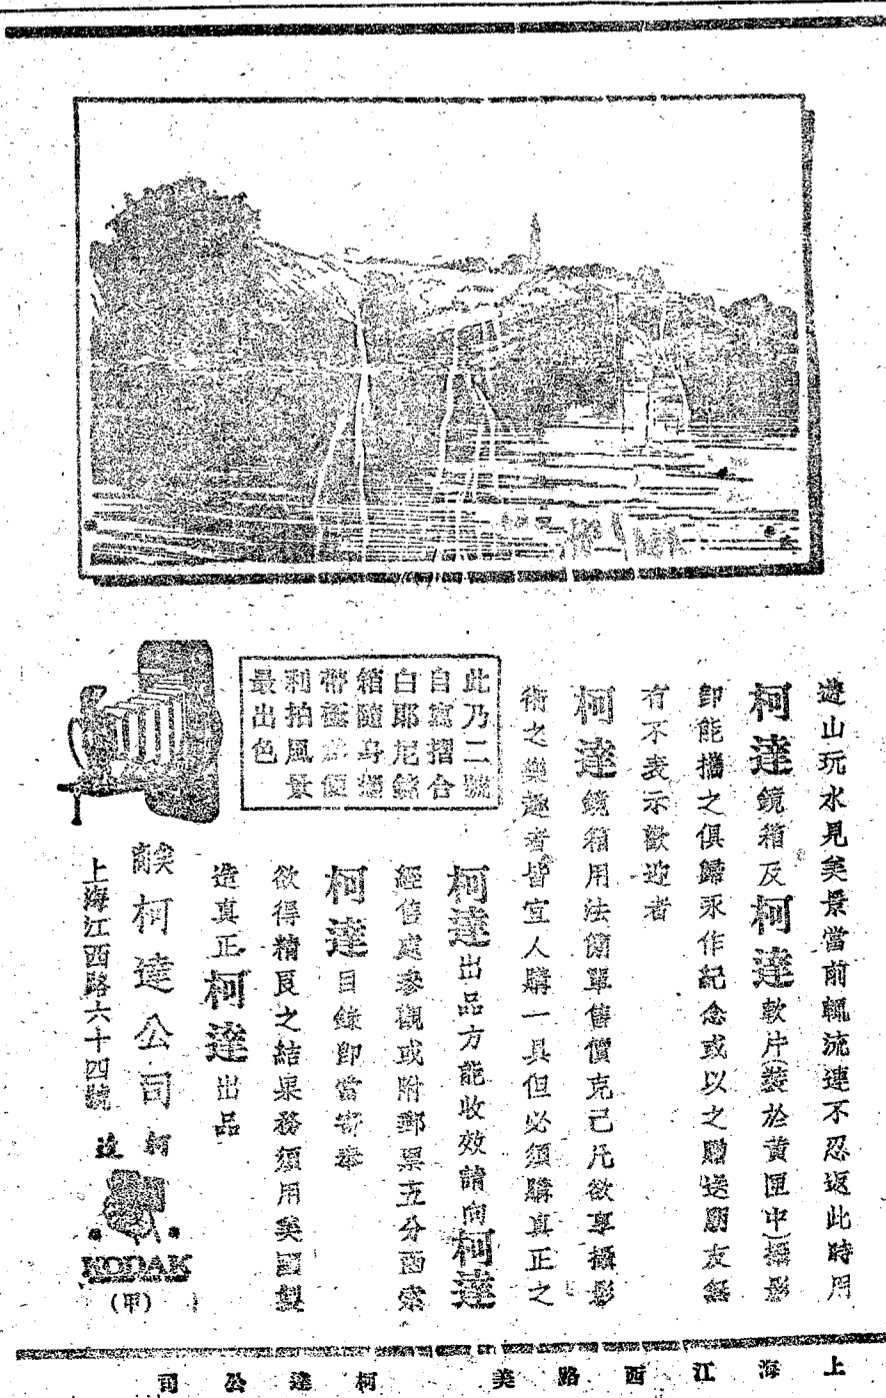 遊山玩水見美景當前輒流連不忍返此時用
柯達鏡箱及柯達軟片(裝於黃匣中)攝影
卽能攜之俱歸永作紀念或以之贈送朋友無
有不表示歡迎者
柯達鏡箱用法簡單售價克己凡欲享攝影
術之樂趣者皆宜人購一具但必須購真正之
柯達出品方能收效請向柯達
經售處參觀或附郵票五分函索
柯達目錄卽當寄奉
欲得精良之結果務須用美國製
造真正柯達出品
此乃二號
自寫摺合
白耶尼鏡
箱隨身攜
帶極為便
利拍風景
最出色
柯達公司
上海江西路六十四號
柯達
KODAK
(甲)
上海江西路美 柯達公司